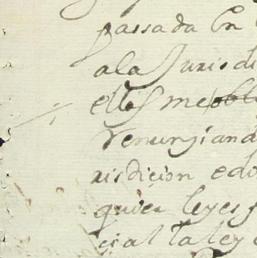 passada En
ala Juris di
ellos me obl
renunziand
risdicion e do
quier leyes
cial la ley